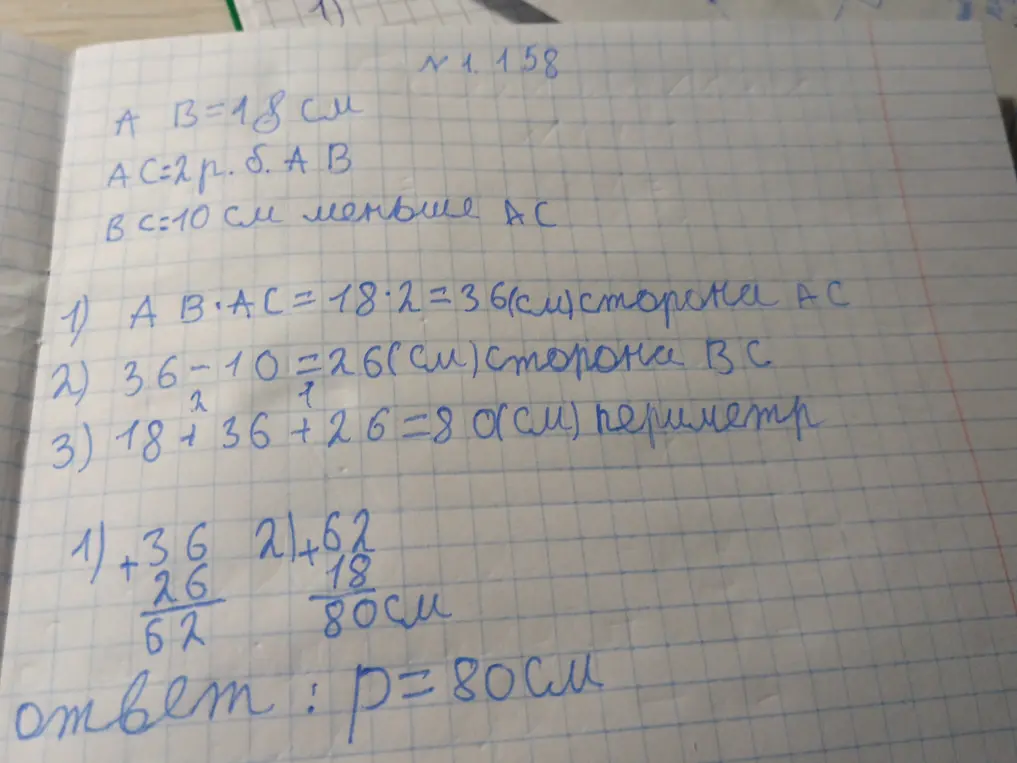 1)
N 1. 158
AB=18 см
AC=2 р. б. AB
BC=10 см меньше AC
1) AB·AC=18·2=36(см)сторона AC
2) 36-10=26(см)сторона BC
2 1
3) 18+36+26=80(см)периметр
1) +36 2) +62
26 18
62 80см
ответ: p=80см